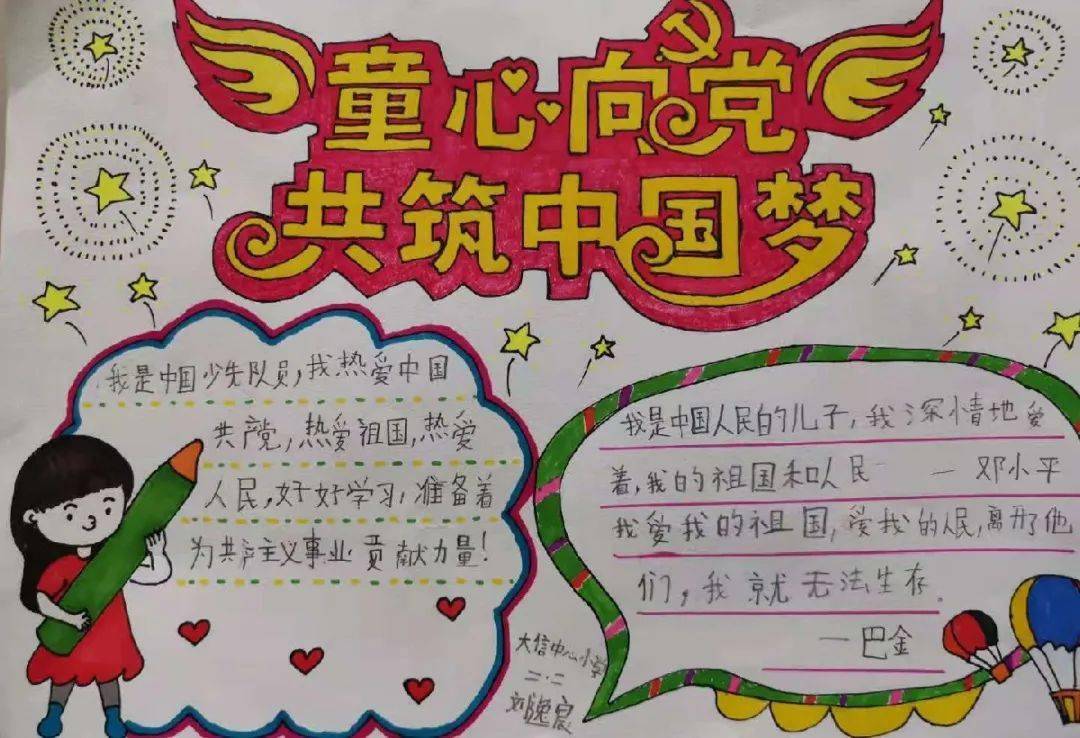 童心向党
共筑中国梦
我是中国少先队员,我热爱中国
共产党,热爱祖国,热爱
人民,好好学习,准备着
为共产主义事业贡献力量!
我是中国人民的儿子,我深情地爱
着,我的祖国和人民 — 邓小平
我爱我的祖国,爱我的人民,离开了他
们,我就无法生存.
—巴金
大信中心小学
二·二
刘逸宸